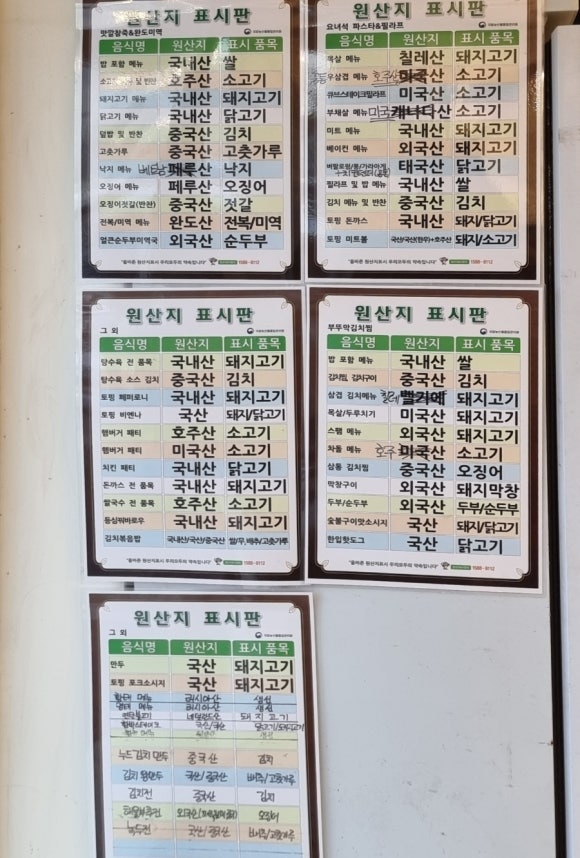 원산지 표시판
맛깔참죽&완도미역
음식명 원산지 표시 품목
밥 포함 메뉴 국내산 쌀
호주산 소고기
돼지고기 메뉴 국내산 돼지고기
닭고기 메뉴 국내산 닭고기
덮밥 및 반찬 중국산 김치
고춧가루 중국산 고춧가루
낙지 메뉴 베트남 페루산 낙지
오징어 메뉴 페루산 오징어
오징어젓갈(반찬) 중국산 젓갈
전복/미역 메뉴 완도산 전복/미역
얼큰순두부미역국 외국산 순두부
"올바른 원산지표시 우리모두의 약속입니다" 1588-8112
원산지 표시판
요녀석 파스타&필라프
음식명 원산지 표시 품목
목살 메뉴 칠레산 돼지고기
우삼겹 메뉴 호주산 미국산 소고기
큐브스테이크필라프 미국산 소고기
부채살 메뉴 미국 캐나다산 소고기
미트 메뉴 국내산 돼지고기
베이컨 메뉴 외국산 돼지고기
태국산 닭고기
필라프 및 밥 메뉴 국내산 쌀
김치 메뉴 및 반찬 중국산 김치
토핑 돈까스 국내산 돼지/닭고기
토핑 미트볼 국산/국산(한우)+호주산 돼지/소고기
"올바른 원산지표시 우리모두의 약속입니다" 1588-8112
원산지 표시판
그 외
음식명 원산지 표시 품목
탕수육 전 품목 국내산 돼지고기
탕수육 소스 김치 중국산 김치
토핑 페퍼로니 국내산 돼지고기
토핑 비엔나 국산 돼지/닭고기
햄버거 패티 호주산 소고기
햄버거 패티 미국산 소고기
치킨 패티 국내산 닭고기
돈까스 전 품목 국내산 돼지고기
쌀국수 전 품목 호주산 소고기
등심꿔바로우 국내산 돼지고기
김치볶음밥 국내산/국산/중국산 쌀/무,배추/고춧가루
"올바른 원산지표시 우리모두의 약속입니다" 1588-8112
원산지 표시판
부뚜막김치찜
음식명 원산지 표시 품목
밥 포함 메뉴 국내산 쌀
김치찜, 김치구이 중국산 김치
삼겹 김치메뉴 칠레 벨기에 돼지고기
목살/두루치기 미국산 돼지고기
스팸 메뉴 외국산 돼지고기
차돌 메뉴 호주 미국산 소고기
삼통 김치찜 중국산 오징어
막창구이 외국산 돼지막창
두부/순두부 외국산 두부/순두부
숯불구이맛소시지 국산 돼지/닭고기
한입핫도그 국산 닭고기
"올바른 원산지표시 우리모두의 약속입니다" 1588-8112
원산지 표시판
그 외
음식명 원산지 표시 품목
만두 국산 돼지고기
토핑 포크소시지 국산 돼지고기
황태 메뉴 러시아산 생선
명태 메뉴 러시아산 생선
네덜란드산 돼지고기
함박스테이크 국산/국산 닭고기/돼지고기
누드김치만두 중국산 김치
김치 왕만두 국산/중국산 배추/고춧가루
김치전 중국산 김치
오징어
녹두전 국산/중국산 배추/고춧가루